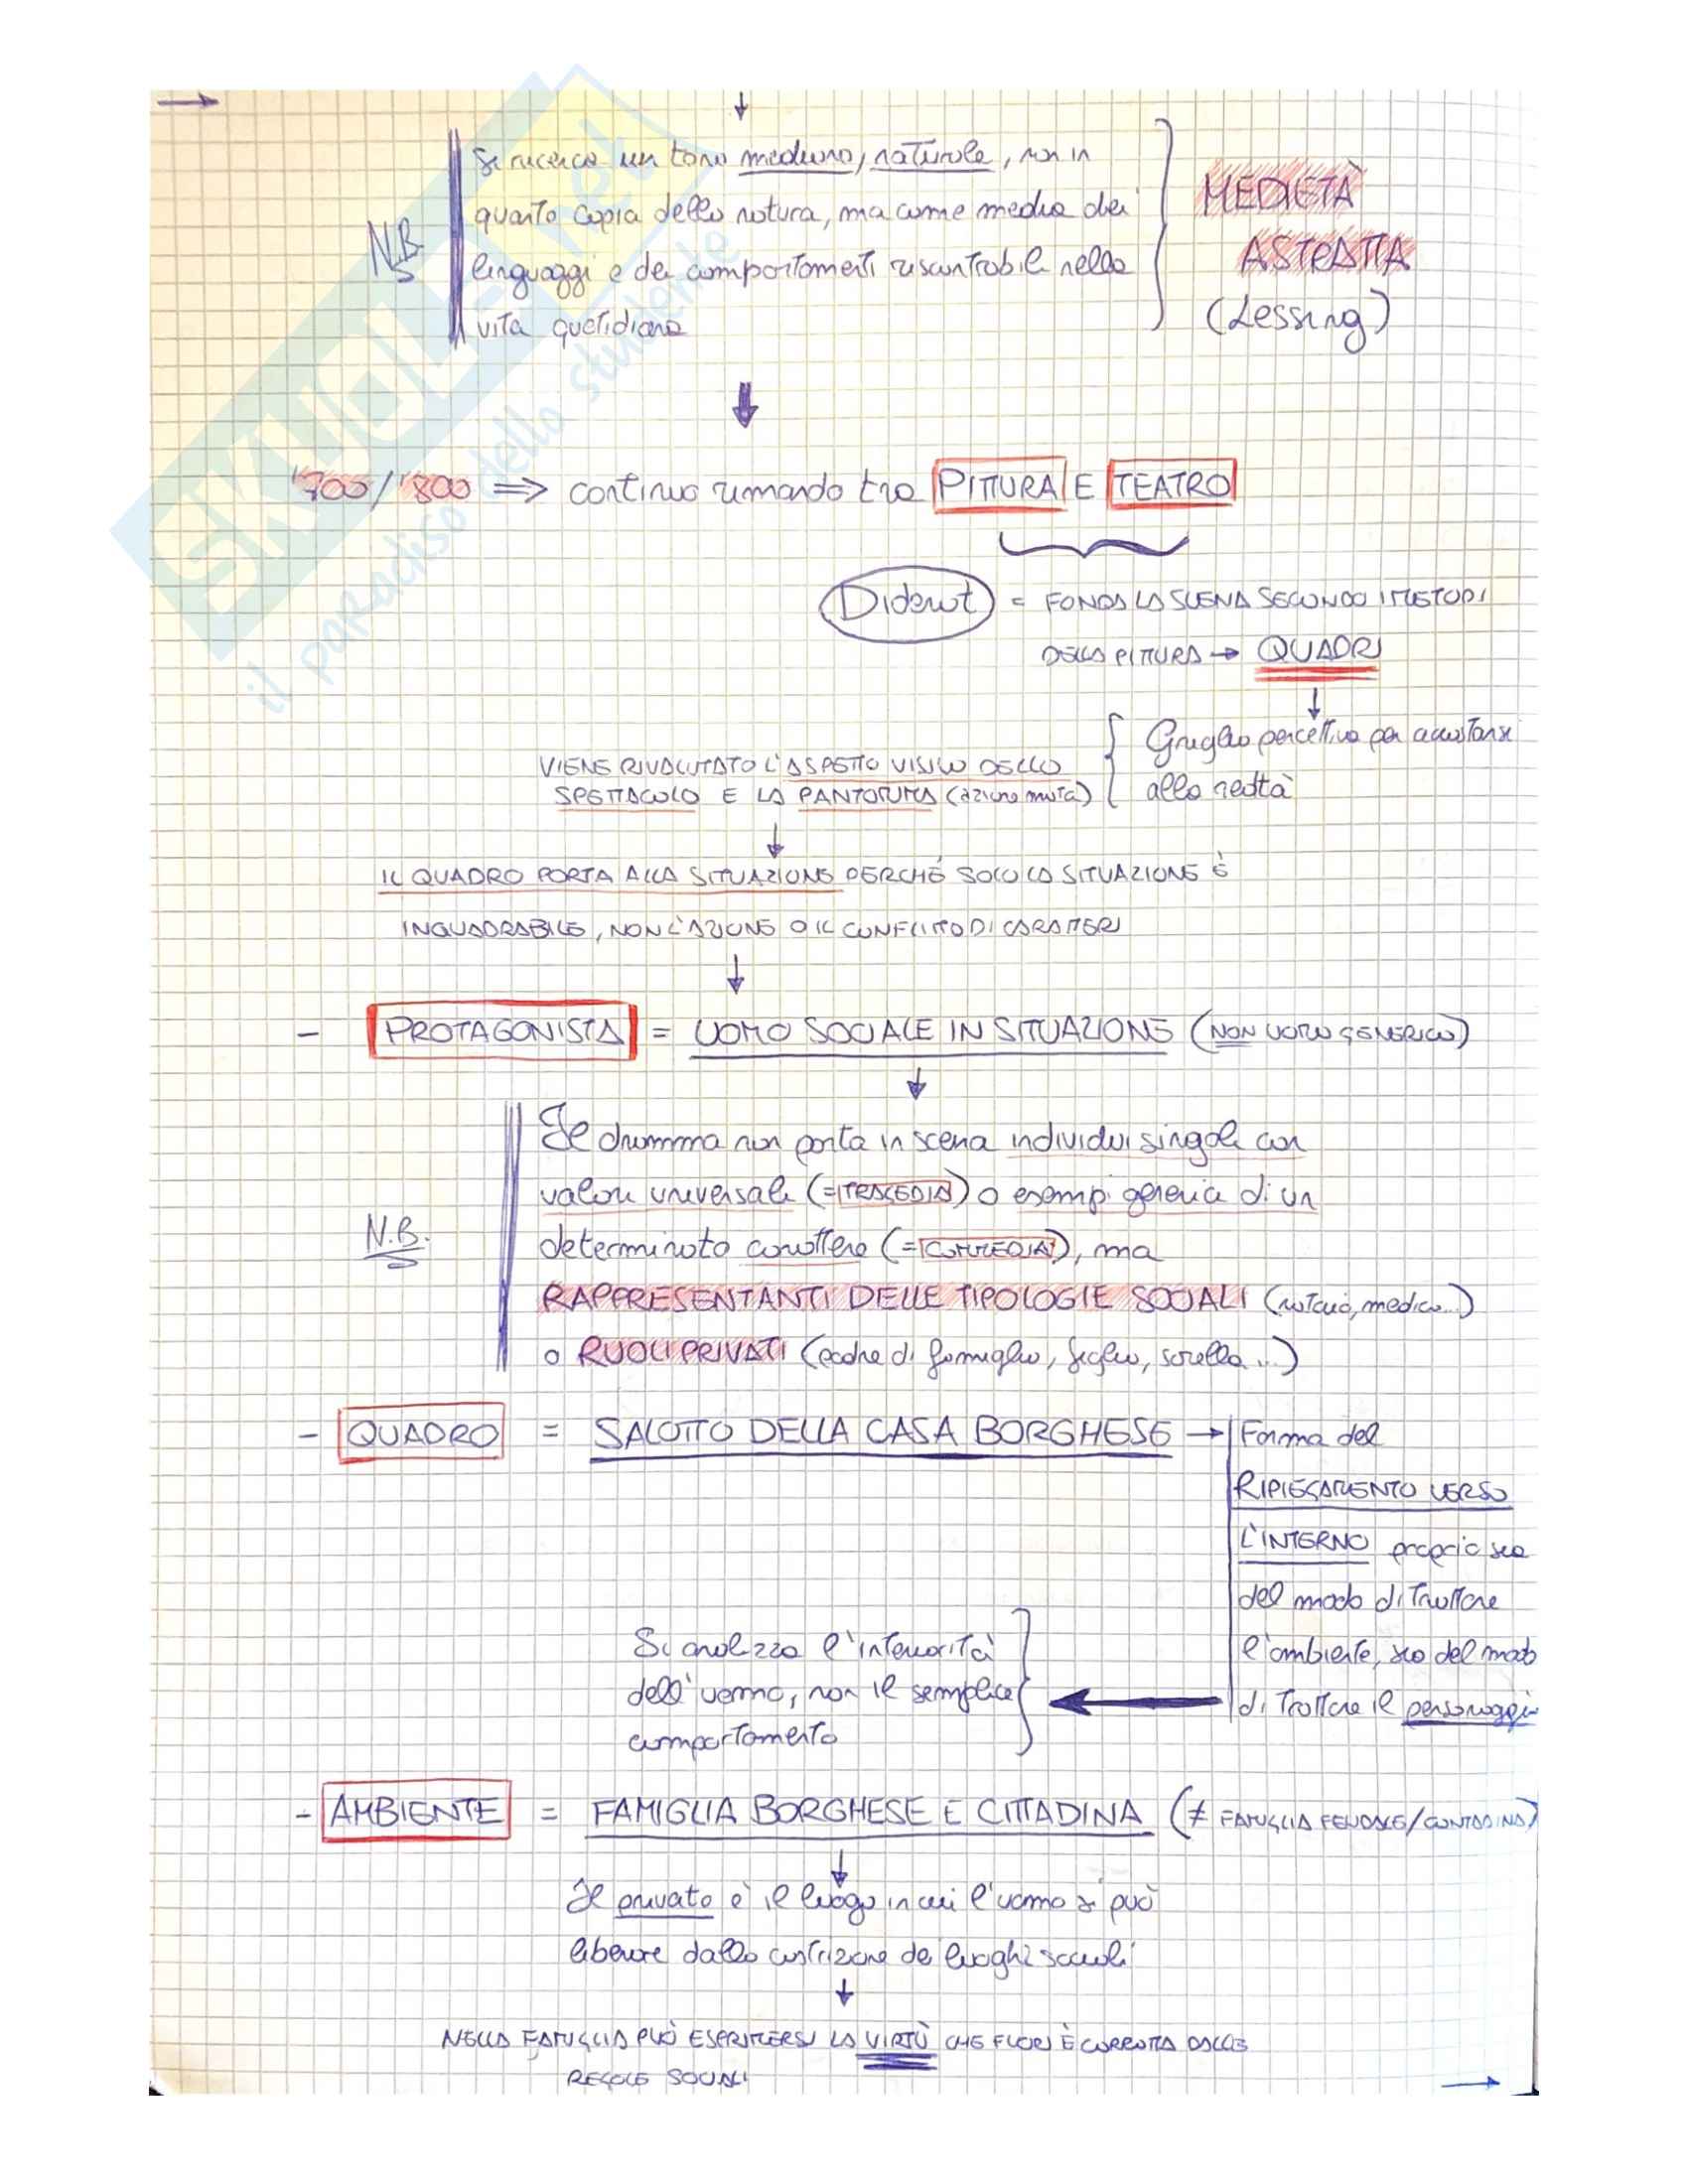 Si ricerca un tono mediano, naturale, non in
quanto copia della natura, ma come media dei
N.B.
linguaggi e dei comportamenti riscontrabili nella
vita quotidiana
MEDIETÀ
ASTRATTA
(Lessing)
'700/'800 ⇒ continuo rimando tra PITTURA E TEATRO
Diderot = FONDA LA SCENA SECONDO I METODI
DELLA PITTURA → QUADRI
Griglia percettiva per accostarsi
alla realtà
VIENE RIVALUTATO L'ASPETTO VISIVO DELLO
SPETTACOLO E LA PANTOMIMA (azione muta)
IL QUADRO PORTA ALLA SITUAZIONE PERCHÉ SOLO LA SITUAZIONE È
INQUADRABILE, NON L'AZIONE O IL CONFLITTO DI CARATTERI
- PROTAGONISTA = UOMO SOCIALE IN SITUAZIONE (NON UOMO GENERICO)
Il dramma non porta in scena individui singoli con
valore universale (= TRAGEDIA) o esempi generici di un
N.B.
determinato carattere (= COMMEDIA), ma
RAPPRESENTANTI DELLE TIPOLOGIE SOCIALI (notaio, medico...)
o RUOLI PRIVATI (padre di famiglia, figlio, sorella...)
- QUADRO = SALOTTO DELLA CASA BORGHESE → Forma del
RIPIEGAMENTO VERSO
L'INTERNO proprio sia
del modo di trattare
l'ambiente, sia del modo
di trattare i personaggi
Si analizza l'interiorità
dell'uomo, non il semplice
comportamento
- AMBIENTE = FAMIGLIA BORGHESE E CITTADINA (≠ FAMIGLIA FEUDALE/CONTADINA)
Il privato è il luogo in cui l'uomo si può
liberare dalla costrizione dei luoghi sociali
NELLA FAMIGLIA PUÒ ESPRIMERSI LA VIRTÙ CHE FUORI È CORROTTA DALLE
REGOLE SOCIALI
SKUOLA.net
il paradiso dello studente